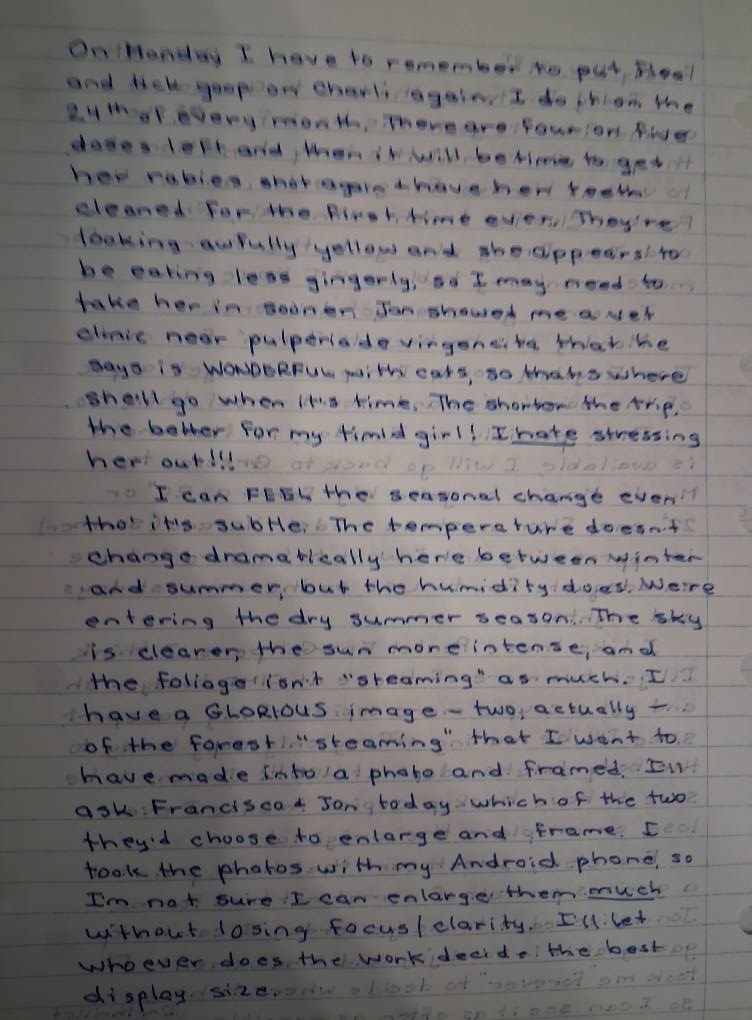 On Monday I have to remember to put flea
and tick goop on Charli again. I do it on the
24th of every month. There are four or five
doses left and then it will be time to get
her rabies shot again & have her teeth
cleaned for the first time ever. They're
looking awfully yellow and she appears to
be eating less gingerly, so I may need to
take her in sooner. Jon showed me a vet
clinic near pulperia de virgencita that he
says is WONDERFUL with cats, so that's where
she'll go when it's time. The shorter the trip,
the better for my timid girl! I hate stressing
her out!!!
I can FEEL the seasonal change even
tho' it's subtle. The temperature doesn't
change dramatically here between winter
and summer, but the humidity does. We're
entering the dry summer season. The sky
is clearer, the sun more intense, and
the foliage isn't "steaming" as much. I
have a GLORIOUS image - two, actually -
of the forest "steaming" that I want to
have made into a photo and framed. I'll
ask Francisco & Jon today which of the two
they'd choose to enlarge and frame. I
took the photos with my Android phone, so
I'm not sure I can enlarge them much
without losing focus/clarity. I'll let
whoever does the work decide the best
display size.